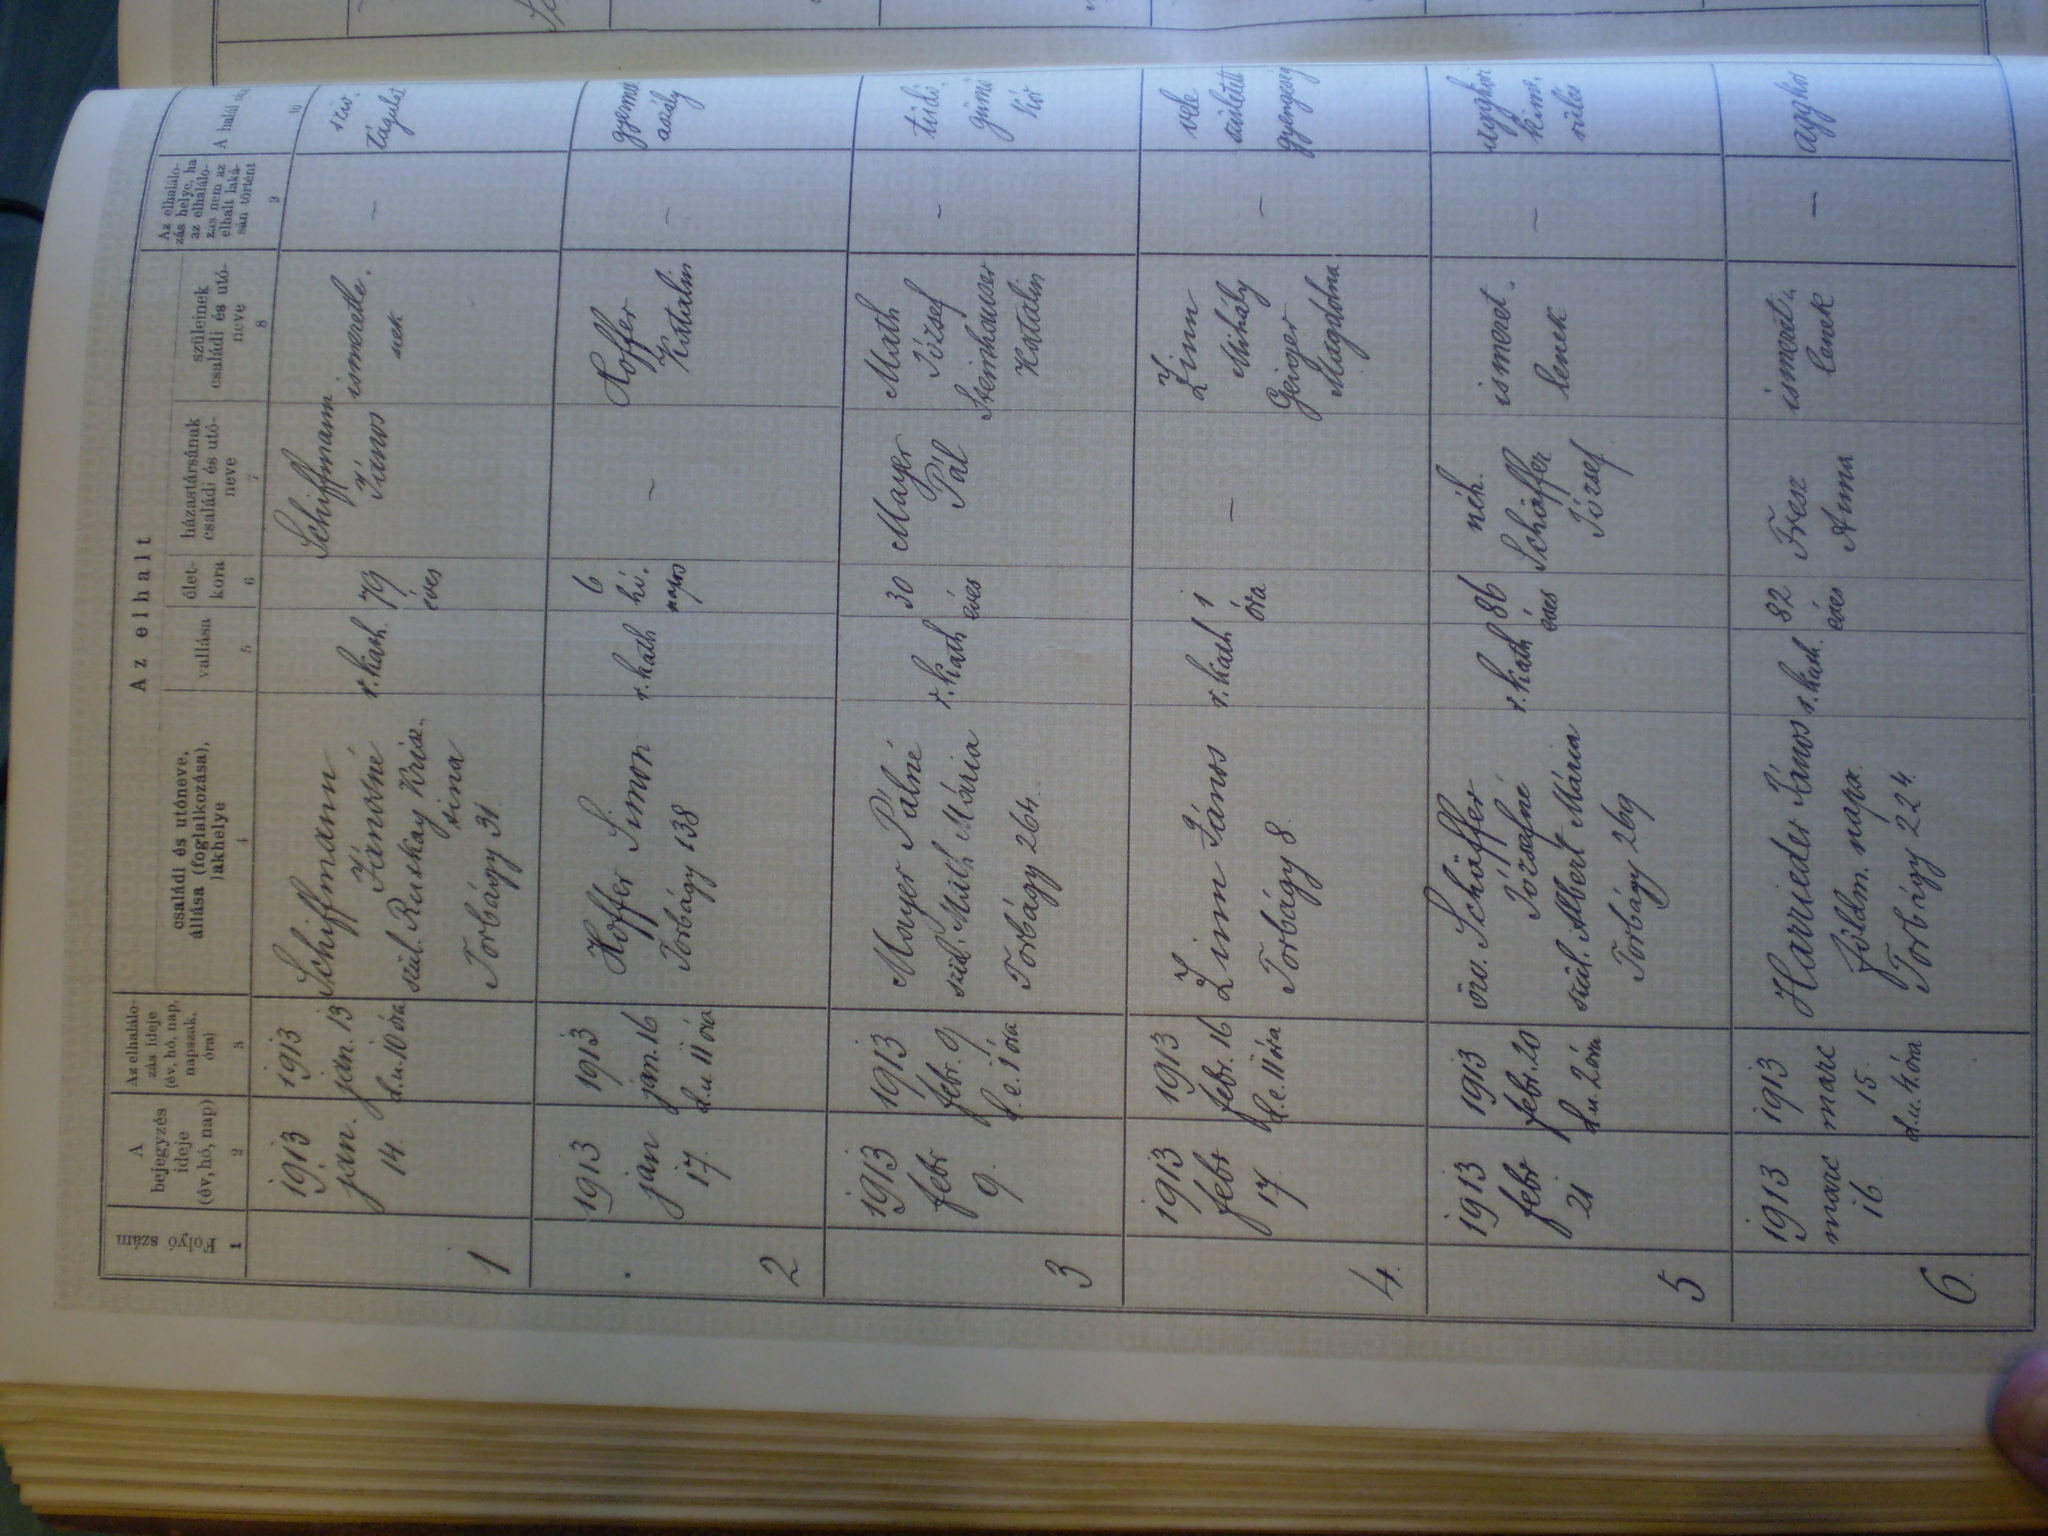 Az elhalt
Folyó szám
A bejegyzés ideje (év, hó, nap)
Az elhalálozás ideje (év, hó, nap, napszak, óra)
családi és utóneve, állása (foglalkozása), lakhelye
vallása
életkora
házastársának családi és utóneve
szüleinek családi és utóneve
Az elhalálozás helye, ha az elhalálozás nem az elhalt lakásán történt
A halál
1 2 3 4 5 6 7 8 9 10
1
1913
jan.
14.
1913
jan. 13
d.u. 10 óra
Schiffmann
Jánosné
szül. Ruskay Krisz
Torbágy 31
r. kath.
79
éves
Schiffmann
János
ismeretle-
nek
–
szív-
tágulat
2
1913
jan
17.
1913
jan. 16
d.u. 11 óra
Hoffer Simon
Torbágy 138
r. kath
6
hó-
napos
–
Hoffer
Katalin
–
gyermek
aszály
3
1913
febr
9.
1913
febr. 9.
d.e. 1 óra
Mayer Pálné
szül. Muth Mária
Torbágy 264.
r. kath
30
éves
Mayer
Pál
Muth
József
Steinhauser
Katalin
–
tüdő-
gümő
kór
4.
1913
febr
17
1913
febr. 16
d.e. 11 óra
Zinn János
Torbágy 8.
r. kath
1
óra
–
Zinn
Mihály
Geiger
Magdolna
–
vele
született
gyengeség
5
1913
febr
21
1913
febr. 20
d.u. 2 óra
özv. Schöffer
Józsefné
szül. Albert Mária
Torbágy 269
r. kath
86
éves
néh.
Schöffer
József
ismeret-
lenek
–
aggkori
kime-
rülés
6.
1913
marc
16.
1913
marc
15.
d.u. 4. óra
Harrieder János
földm. napsz.
Torbágy 224.
r. kath.
82
éves
Fresz
Anna
ismeret-
lenek
–
aggkor